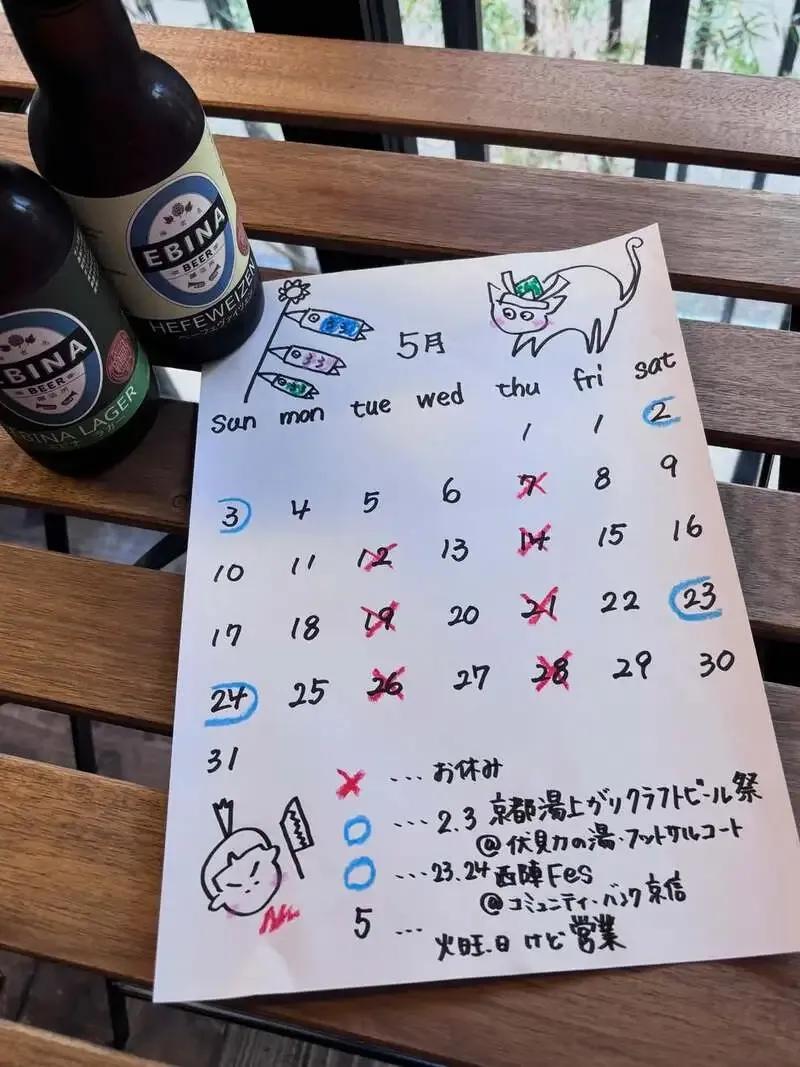 EBINA
BEER
HEFEWEIZEN
ヘーフェヴァイツェン
EBINA
BEER
EBINA LAGER
5月
sun mon tue wed thu fri sat
1 1 2
3 4 5 6 7 8 9
10 11 12 13 14 15 16
17 18 19 20 21 22 23
24 25 26 27 28 29 30
31
× ... お休み
○ ... 2.3 京都湯上がりクラフトビール祭
@伏見力の湯・フットサルコート
○ ... 23.24 西陣Fes
@コミュニティ・バンク京信
5 ... 火曜日けど営業